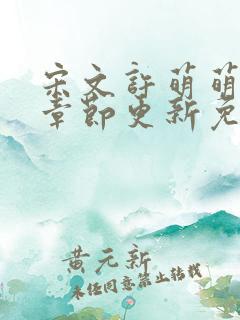 宋文許萌萌
章節更新免
黄元新
未经同意禁止转载